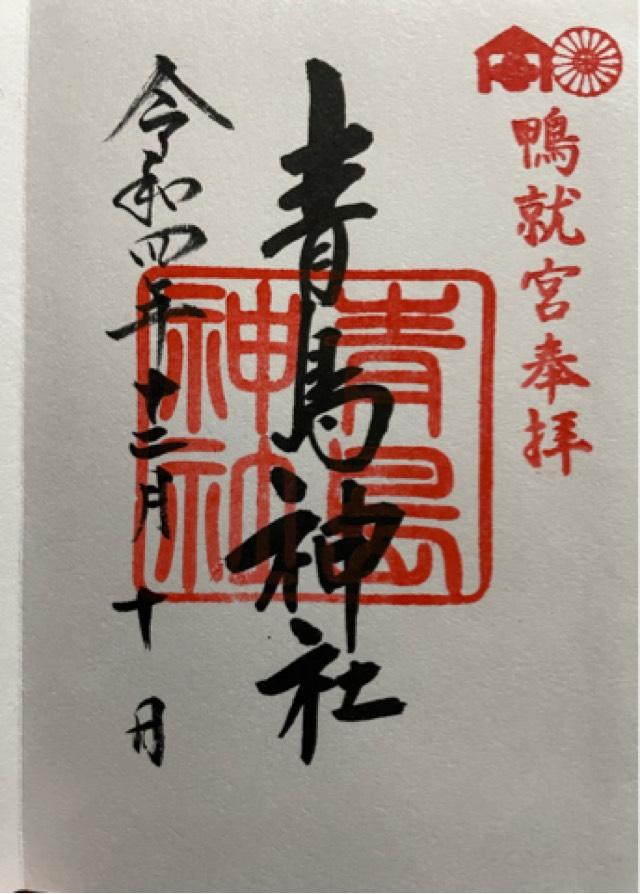 鴨就宮奉拝
青島神社
青島
神社
令和四年十二月十日